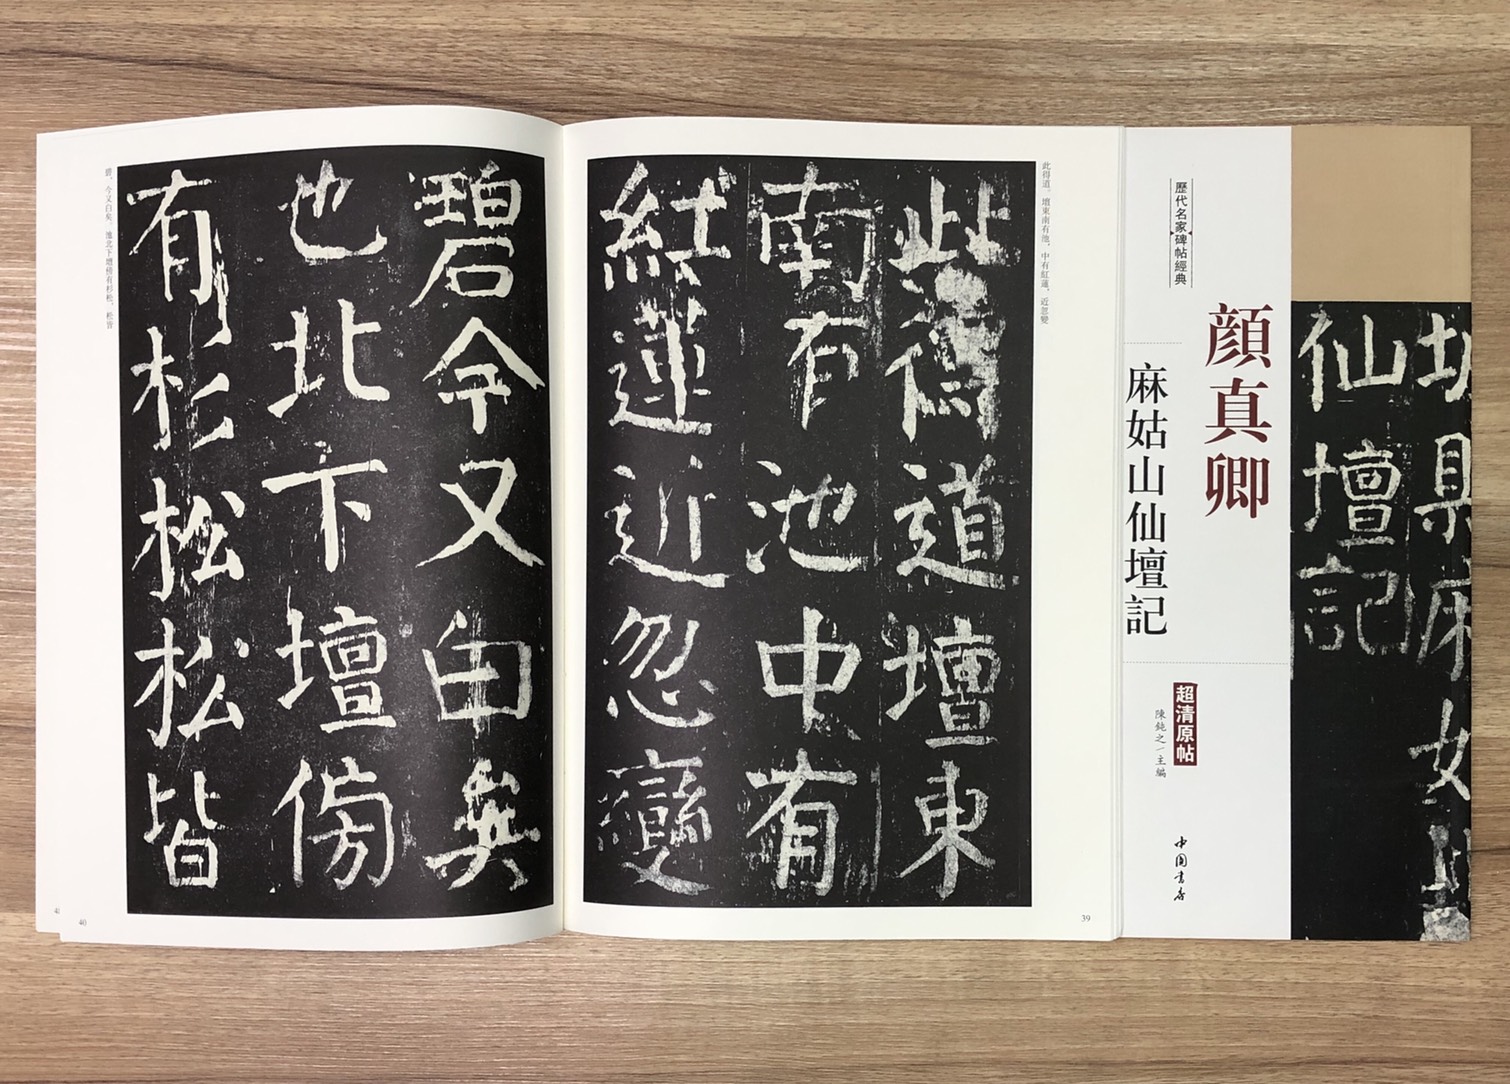 歷代名家碑帖經典
顔真卿
麻姑山仙壇記
超清原帖
陳鈍之/主編
中国書店
仙壇記
此得道。壇東南有池，中有紅蓮，近忽變
此得道壇東
南有池中有
紅蓮近忽變
39
碧，今又白矣。壇北下壇傍有杉松，松皆
碧今又白矣
也北下壇傍
有杉松松皆
40